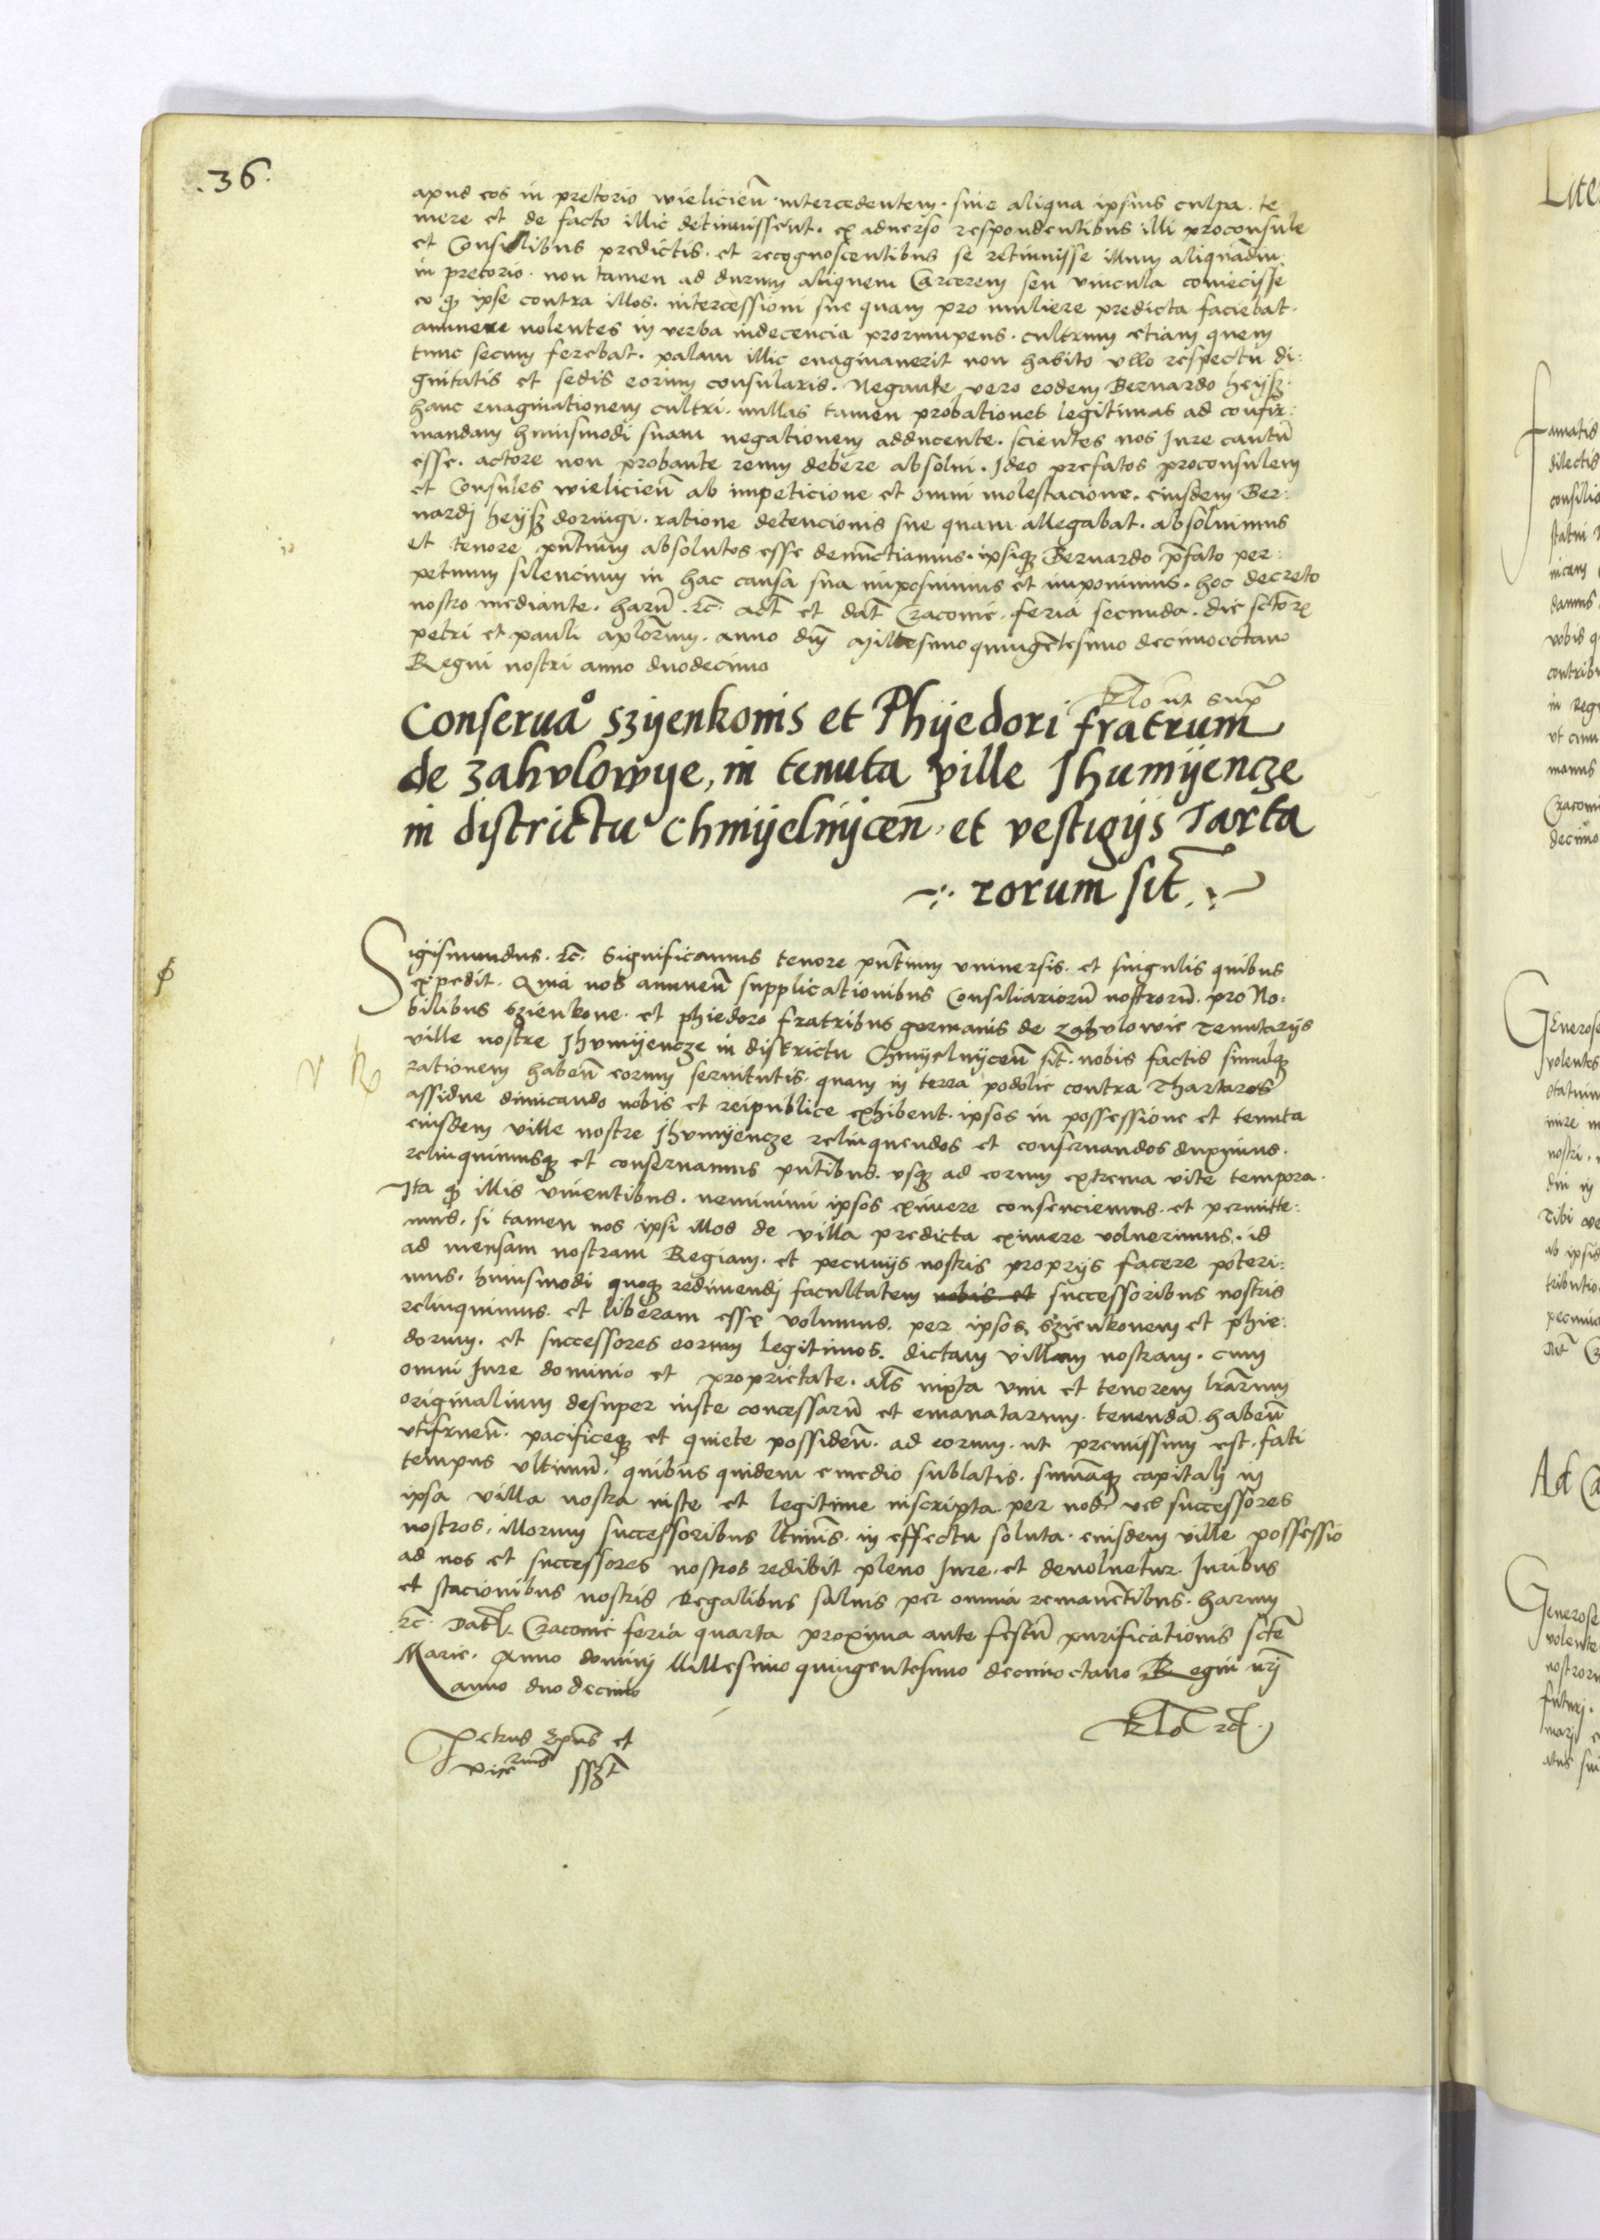 .36.
apud eos in pretorio wielicieñ intercedentem. sine aliqua ipsius culpa. te
mere et de facto illic detinuissent. ex adverso respondentibus illi proconsule
et Consulibus predictis. et recognoscentibus se retinuisse illum aliquãdiu.
in pretorio. non tamen ad durum aliquem Carcerem seu vincula coniecisse
eo qz ipse contra illos. intercessioni sue quam pro muliere predicta faciebat.
annuere nolentes in verba indecencia prorumpens. cultrum etiam quem
tunc secum ferebat. palam illic enaginaverit non habito vllo respectu di:
gnitatis et sedis eorum consularis. Negante vero eodem Bernardo heysz.
hanc enaginationem cultri. nullas tamen probationes legitimas ad confir:
mandam huiusmodi suam negationem adducente. scientes nos Jure cautũ
esse. actore non probante reum debere absolui. Ideo prefatos proconsulem
et Consules wielicieñ ab impeticione et omni molestacione. eiusdem Ber:
nardj heysz doringi. ratione detencionis sue quam allegabat. absoluimus
et tenore pñtium absolutos esse denũctiamus. ipsiqz Bernardo p̃fato per:
petuum silencium in hac causa sua imposuimus et imponimus. hoc decreto
nostro mediante. harũ. rc̃. act̃ et dat̃ Cracovie. feria secunda. die sctõr
petri et pauli ap̃lorum. anno dñj Millesimo quingẽtesimo decimooctavo
Regni nostri anno duodecimo
Rlo ut sup̃
Conserua° Szyenkonis et Phyedori fratrum
de Zahvlowye, in tenuta ville Jhumyencze
in districtu Chmyelnyceñ, et vestigijs Tarta
rorum sit̃
Sigismundus. rc̃. Significamus tenore pñtium vniuersis. et singulis quibus
expedit. Quia nos annueñ supplicationibus Consiliariorũ nostrorũ. pro No:
bilibus Szienkone. et phiedoro fratribus germanis de Zahvlowie Tenutarijs
ville nostre Jhvmyencze in districtu Chmyelnyceñ sit̃. nobis factis simulqz
rationem habeñ eorum seruitutis. quam in terra podolie contra Thartaros
assidue dimicando nobis et reipublice exhibent. ipsos in possessione et tenuta
eiusdem ville nostre Jhvmyencze relinquendos et conseruandos duximus.
relinquimusqz et conseruamus pñtibus. vsqz ad eorum extrema vite tempora.
Ita qz illis viuentibus. nemini ipsos eximere consenciemus. et permitte:
mus. si tamen nos ipsi illos de villa predicta eximere voluerimus. id
ad mensam nostram Regiam. et pecunijs nostris proprijs facere poteri:
mus. huiusmodi quoqz redimendj facultatem nobis et successoribus nostris
relinquimus. et liberam esse volumus. per ipsos Szienkonem et phie:
dorum. et successores eorum legitimos. dictam villam nostram. cum
omni Jure dominio et proprietate. als iuxta vim et tenorem lr̃arum
originalium desuper iuste concessarũ et emanatarum. tenendã habeñ
vtifrueñ. pacificeqz et quiete possideñ. ad eorum. ut premissum est. fati
tempus vltimũ. quibus quidem e medio sublatis. sum̃aqz capitalj in
ipsa villa nostra iuste et legitime inscripta per nos ves successores
nostros, illorum successoribus ltimis. in effectu soluta. eiusdem ville possessio
ad nos et successores nostros redibit pleno Jure. et devoluetur. Juribus
et stacionibus nostris Regalibus saluis per omnia remanẽtibus. harum
rc̃. Dat̃. Cracovie feria quarta proxima ante festũ purificationis sctẽ
Marie. Anno dominj Millesimo quingentesimo decimooctavo Regni nr̃j
anno duodecimo
Petrus Ep̃us et
Vicerius sszt
Rlo rd.